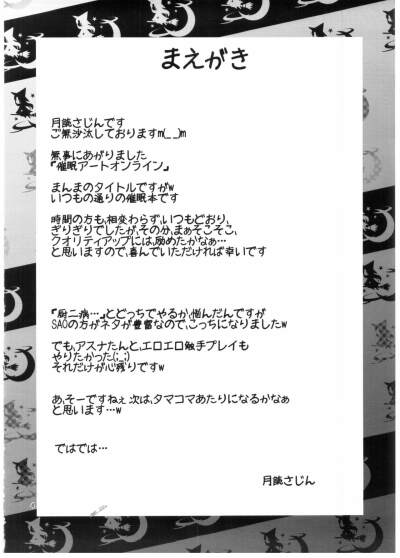 まえがき
月眺さじんです
ご無沙汰しておりますm(_ _)m
無事にあがりました
『催眠アートオンライン』
まんまのタイトルですがw
いつもの通りの催眠本です
時間の方も、相変わらず、いつもどおり、
ぎりぎりでしたが、その分、まぁそこそこ、
クオリティアップには、励めたかなぁ…
と思いますので、喜んでいただければ幸いです
『厨二病…』とどっちでやるか、悩んだんですが
SAOの方がネタが豊富なので、こっちになりましたw
でも、アスナたんと、エロエロ触手プレイも
やりたかった(;_;)
それだけが心残りですw
あ、そーですねぇ 次は、タマコマあたりになるかなぁ
と思います…w
ではでは…
月眺さじん